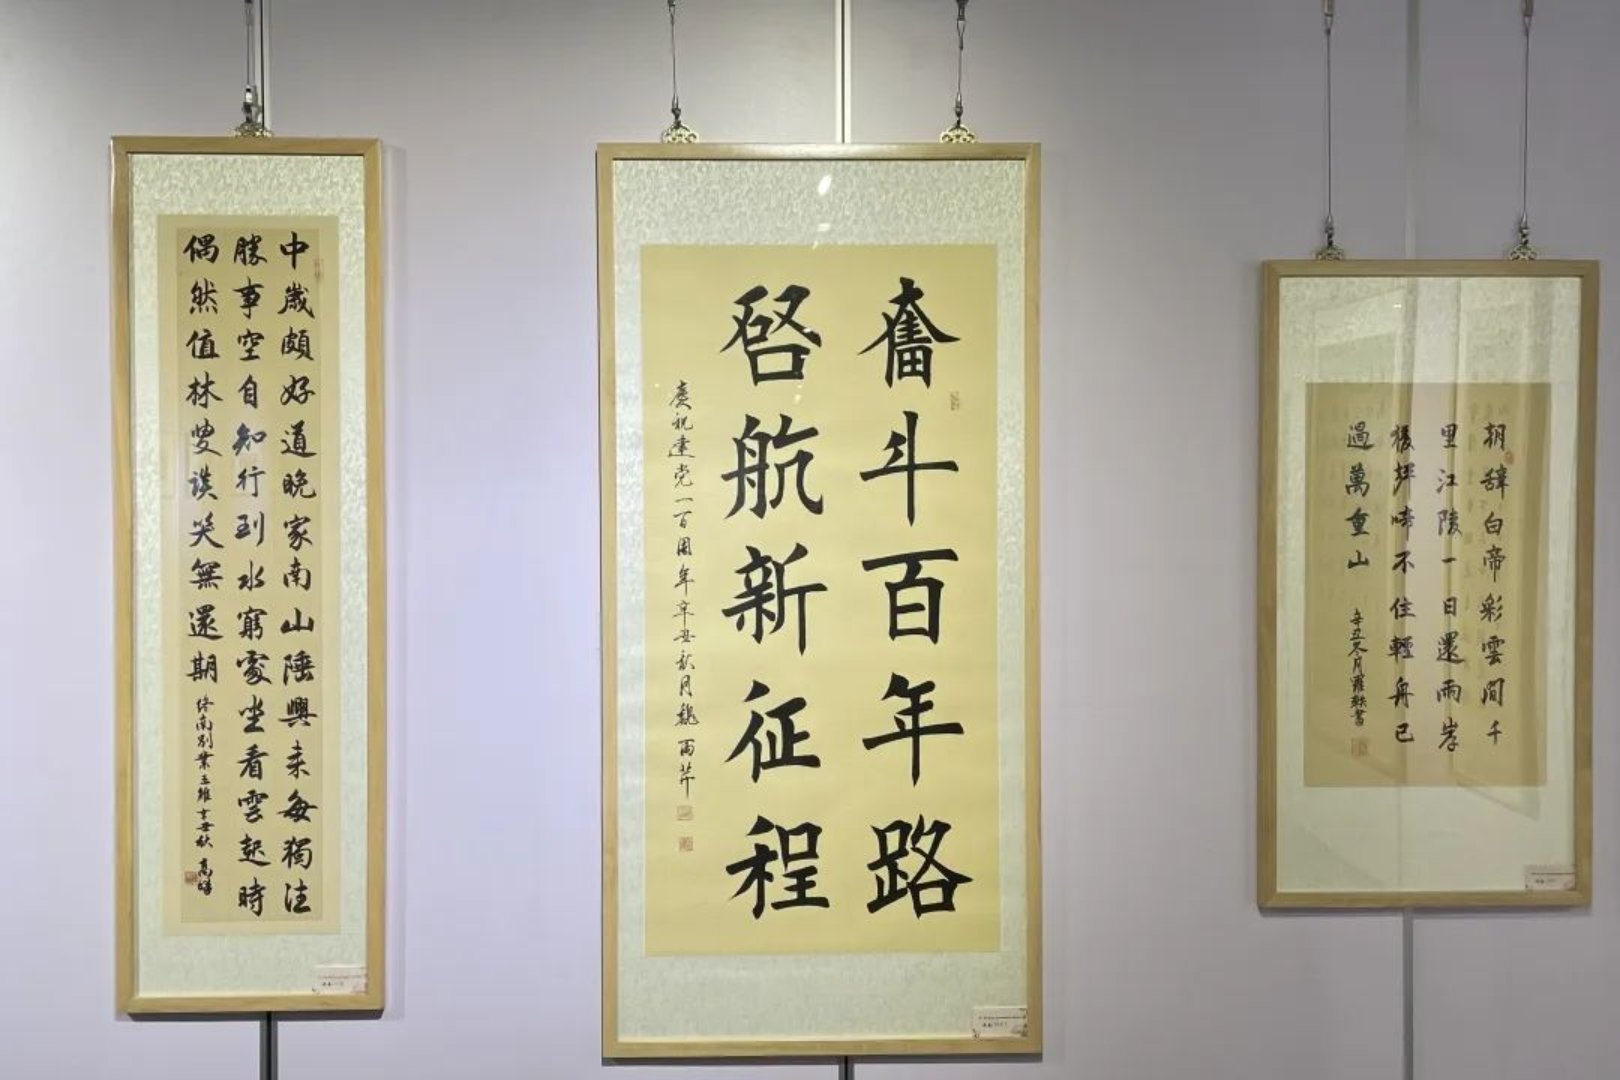 中歲頗好道晚家南山陲興来每獨往
勝事空自知行到水窮處坐看雲起時
偶然值林叟談笑無還期
终南别業王維辛丑秋
奮斗百年路
啓航新征程
慶祝建党一百周年辛丑秋月魏雨芹
朝辭白帝彩雲間千
里江陵一日還兩岸
猿聲啼不住輕舟已
過萬重山
辛丑冬月羅軼書